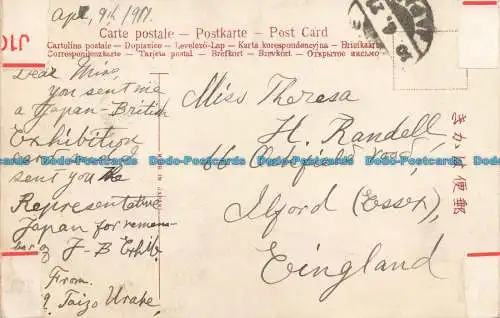 Apr. 9th / 1911.
Carte postale – Postkarte – Post Card
Cartolina postale – Dopisnice – Levelező-Lap – Karta korespondencyjna – Briefkaart
Correspondenzkarte – Tarjeta postal – Brefkort – Brevkort – Открытое письмо
Dear Miss,
you sent me
a Japan-British
Exhibition
sent you the
Representative
Japan for remem-
ber of J-B Exhib.
From
Taizo Urabe,
Miss Theresa
H. Randell,
66 road,
Ilford (Essex),
Eingland
きかは便郵
Dodo-Postcards